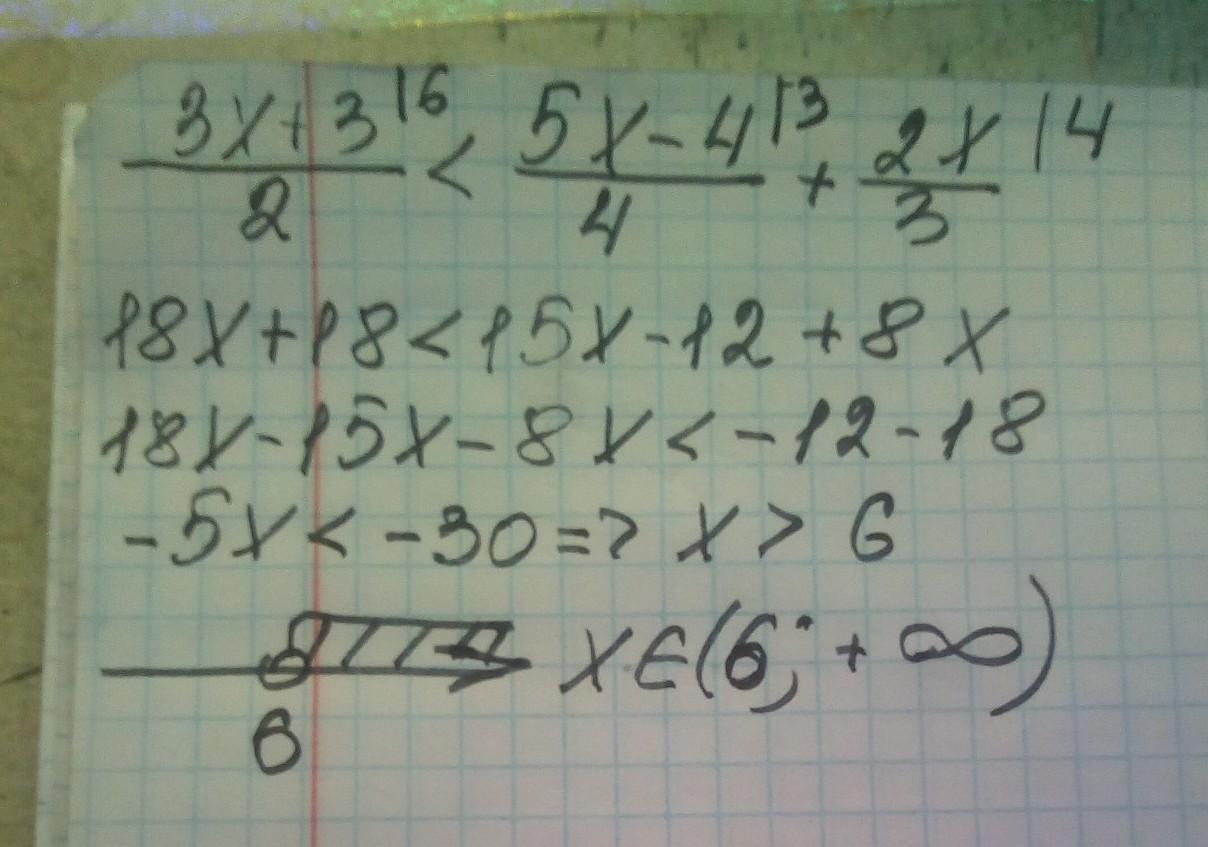 (3x+3)/2 |6 < (5x-4)/4 |3 + 2x/3 |4
18x+18<15x-12+8x
18x-15x-8x<-12-18
-5x<-30=> x>6
6 x∈(6;+∞)